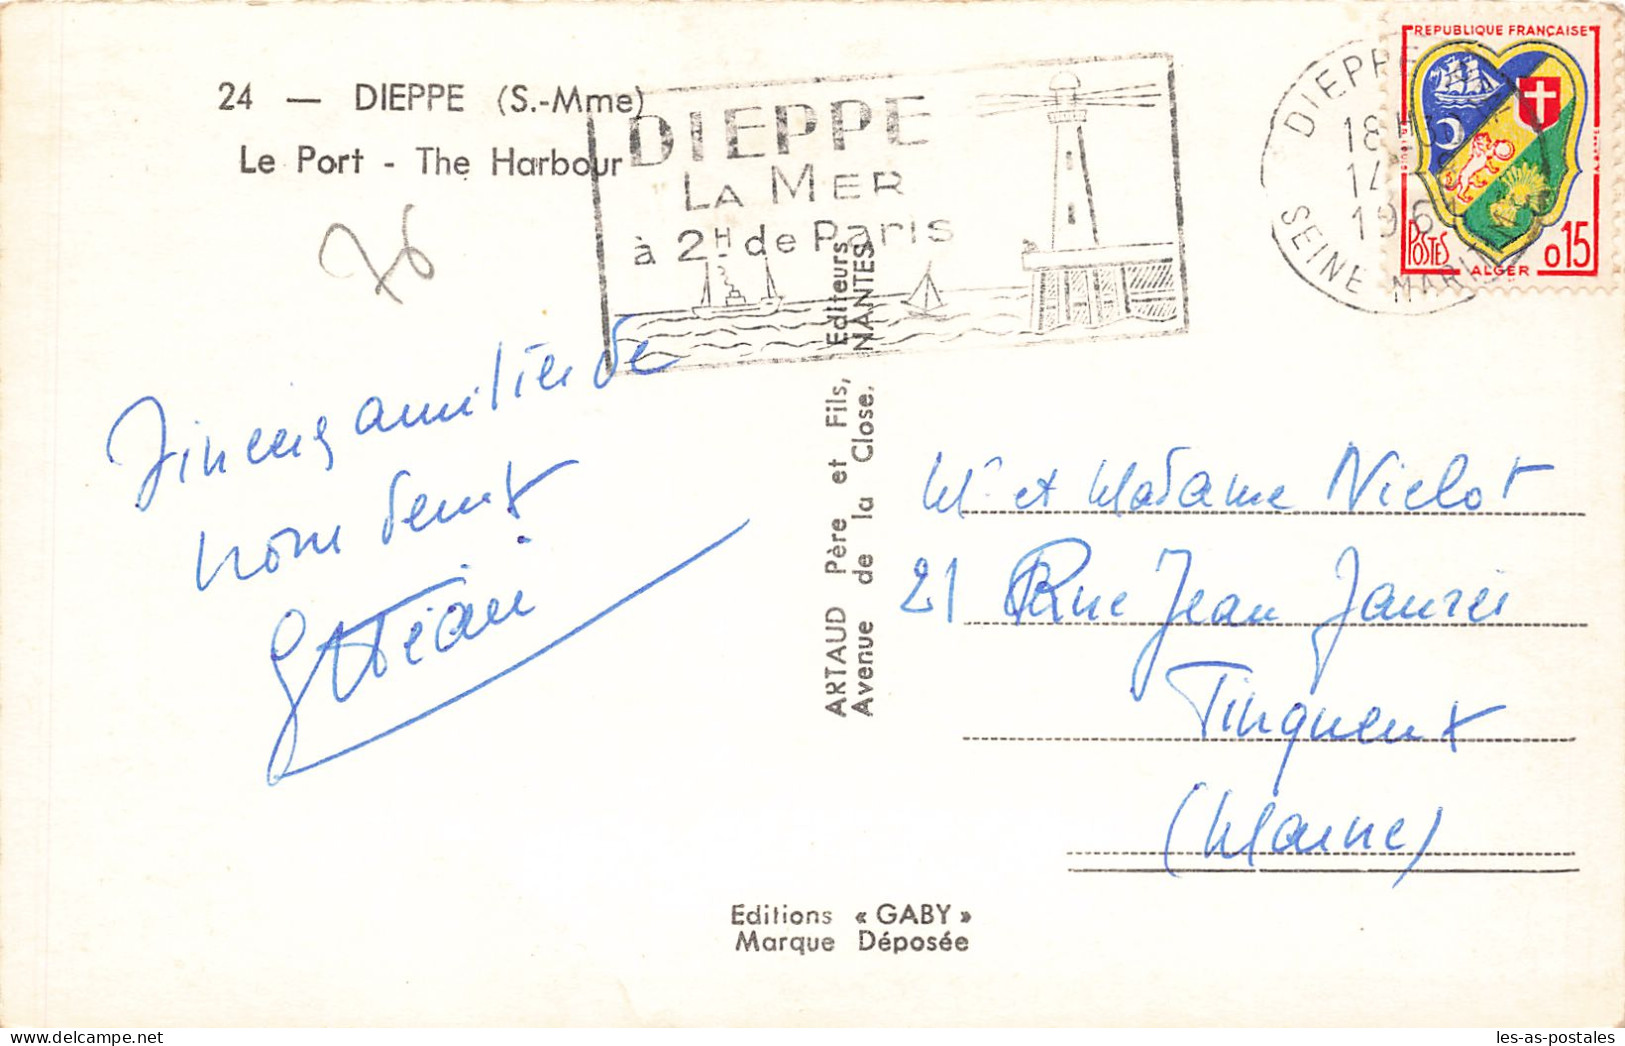 24 — DIEPPE (S.-Mme)
Le Port - The Harbour
76
DIEPPE
LA MER
à 2H de Paris
DIEPPE
18H30
14
196
SEINE MARITIME
REPUBLIQUE FRANÇAISE
POSTES
ALGER
0,15
amitiés de
nous deux
ARTAUD Père et Fils, Editeurs
Avenue de la Close. NANTES
Mr et Madame Niclot
21 Rue Jean Jaurès
Tinqueux
(Marne)
Editions « GABY »
Marque Déposée
les-as-postales